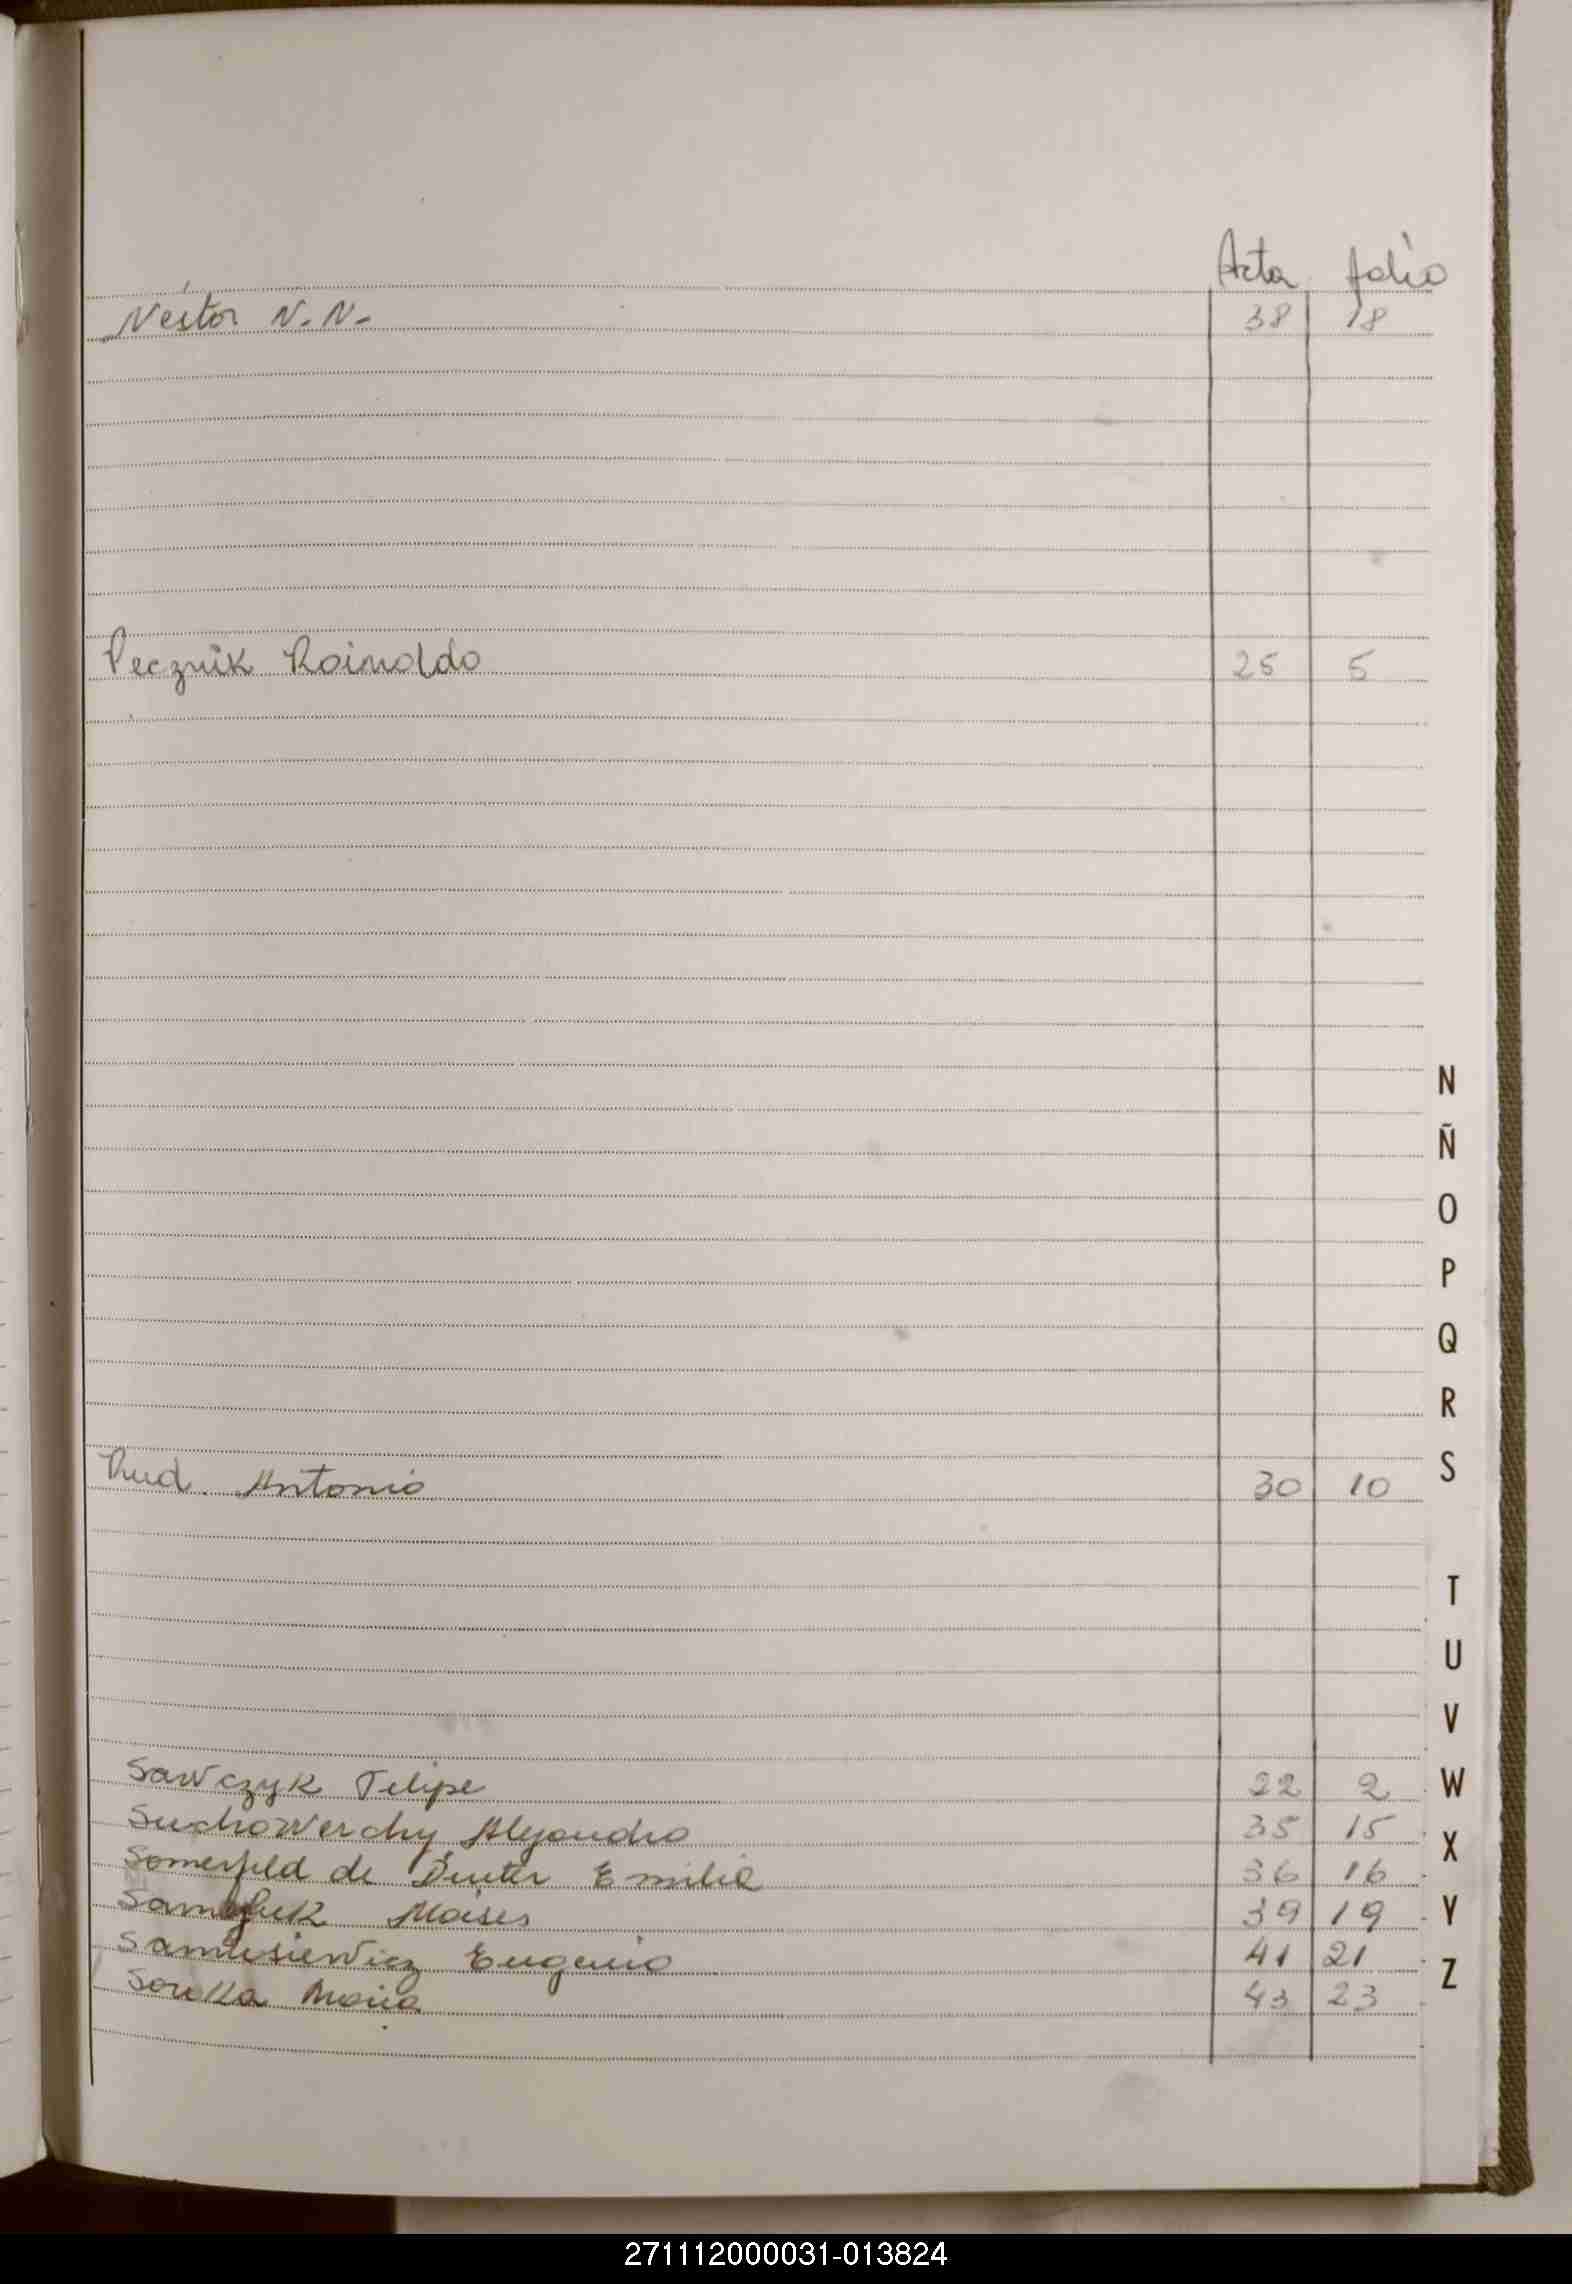 Acta folio
Nestor N.N. 38 18
Pecznik Roinaldo 25 5
N
Ñ
O
P
Q
R
S
Rud. Antonio 30 10
T
U
V
Sawczyk Felipe 22 2
W
Suchowerchy Alejandro 35 15
X
Somerfeld de Emilia 36 16
Moises 39 19
Y
Samusiewicz Eugenio 41 21
Z
Soroka Maria 43 23
271112000031-013824